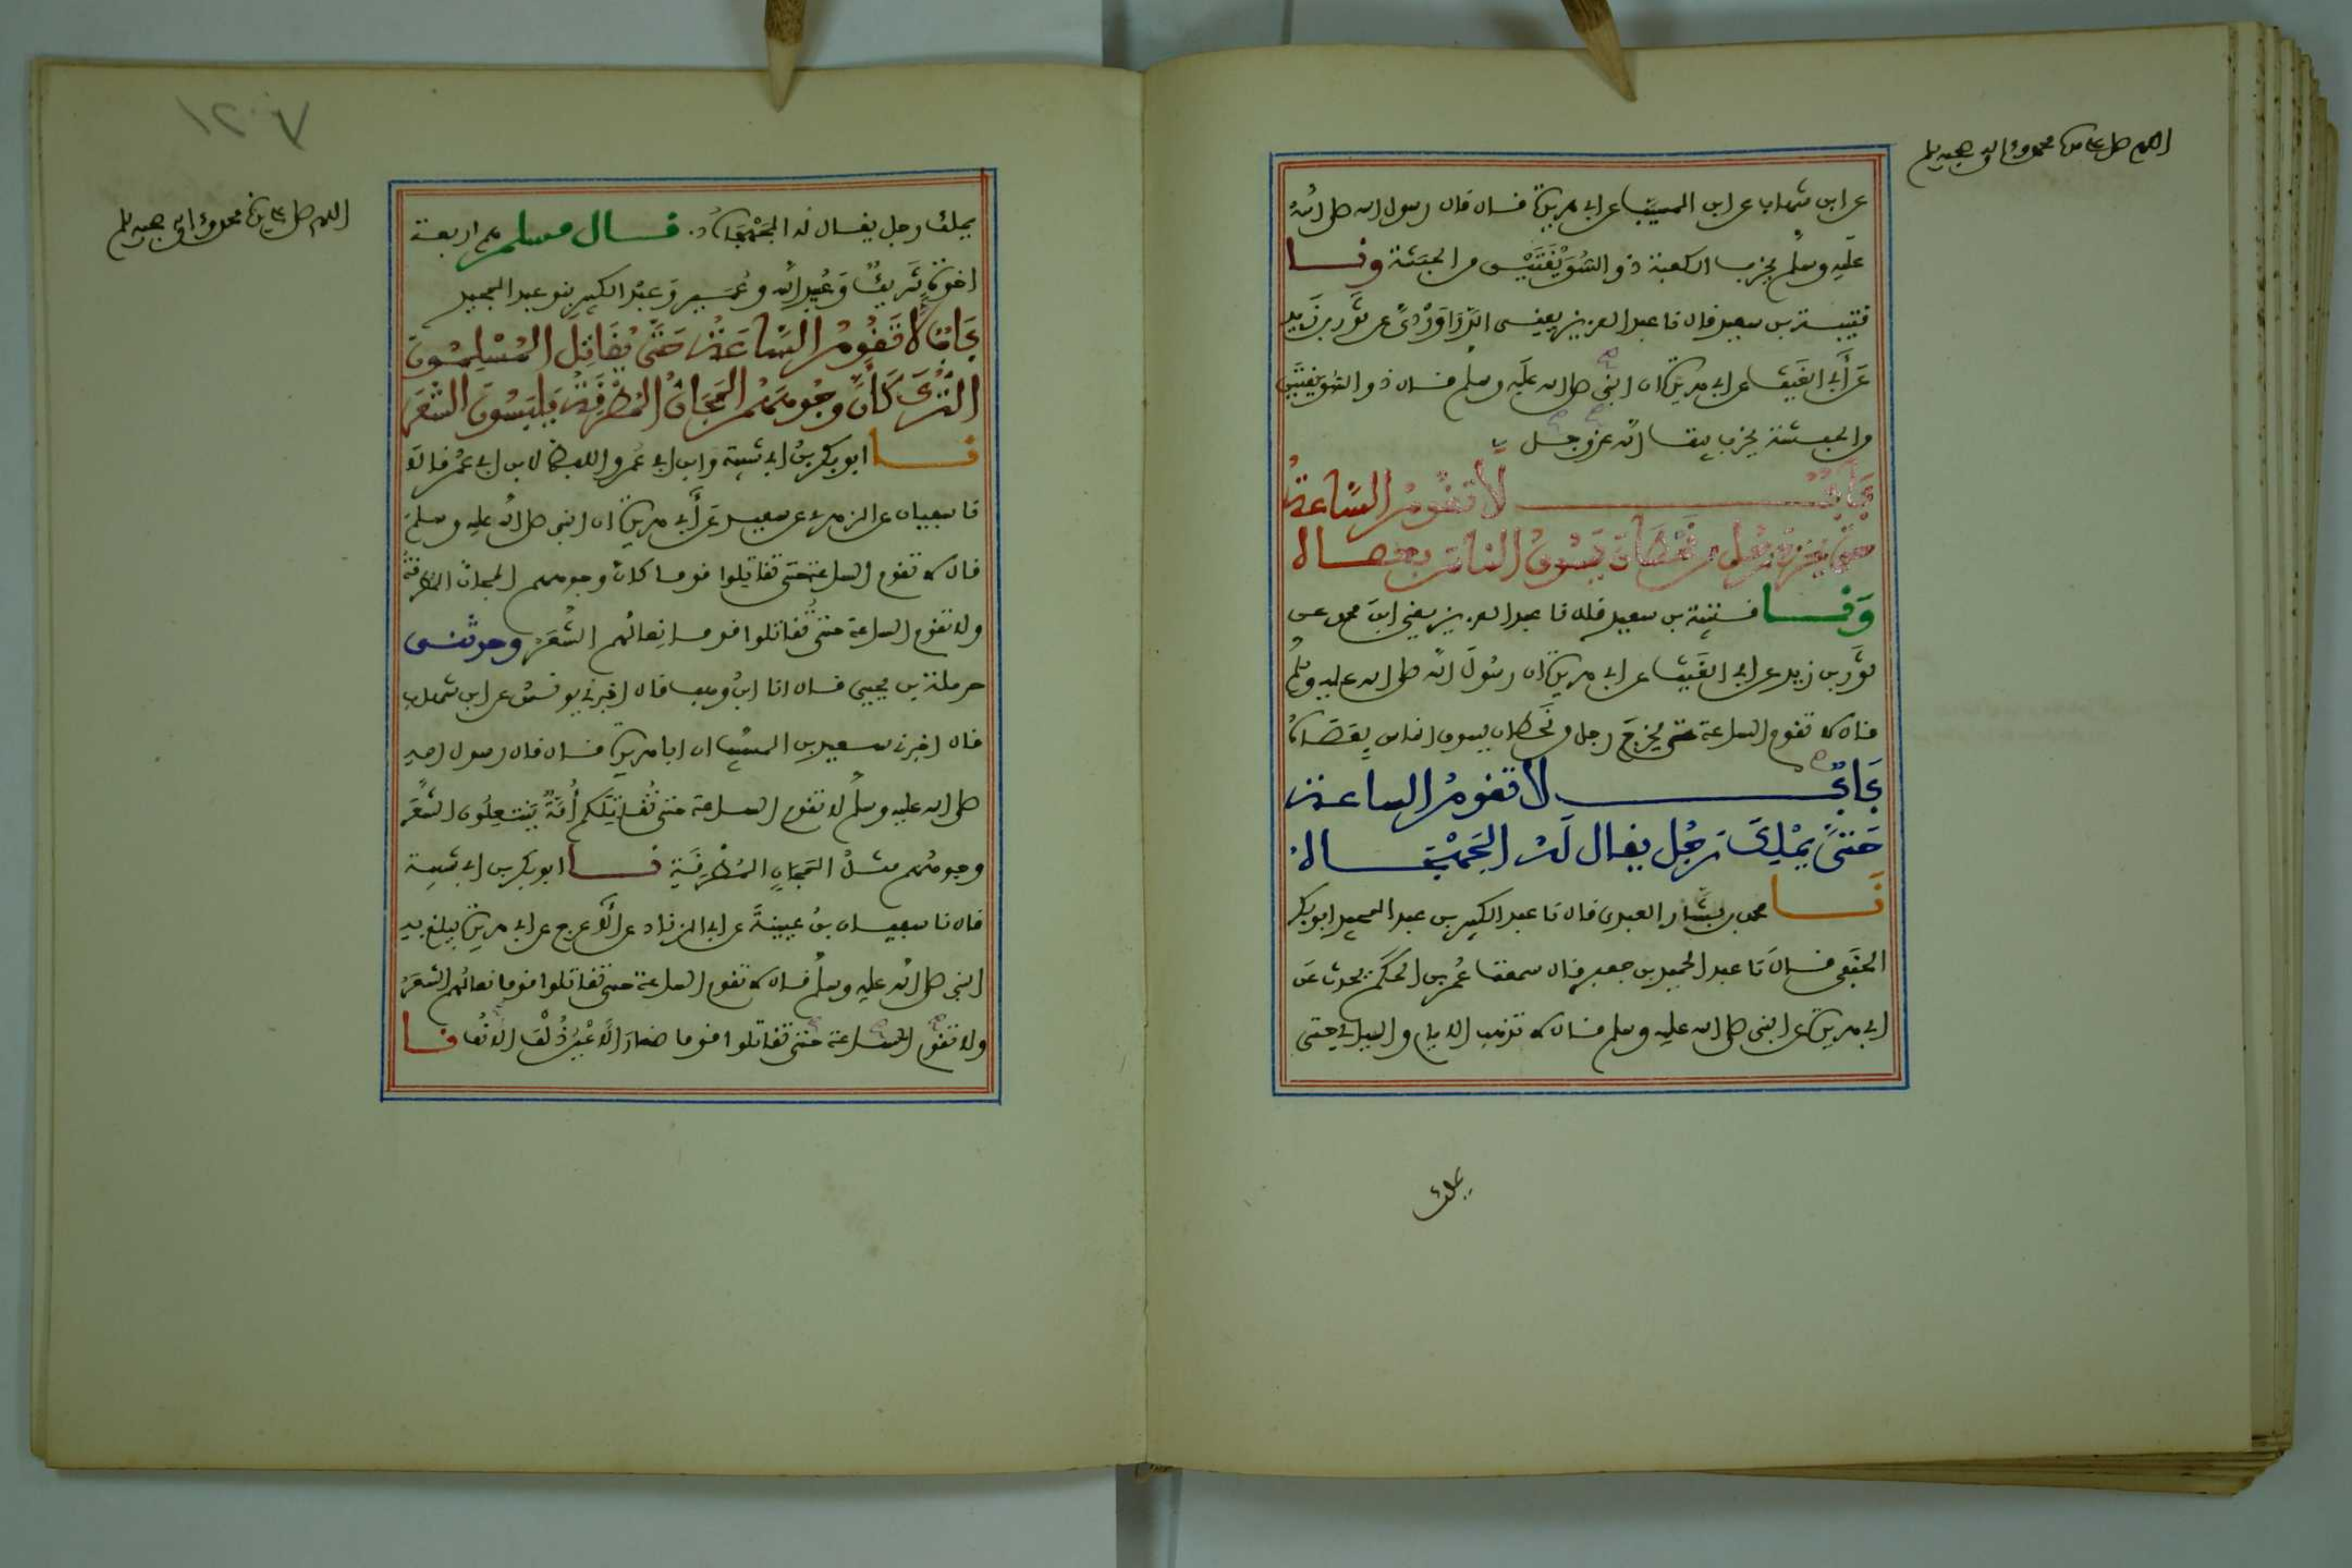 اللهم صل على سيدنا محمد وعلى اله وصحبه وسلم
عن ابن شهاب عن ابن المسيب عن ابي هريرة قال قال رسول الله صلى الله
عليه وسلم يخرب الكعبة ذو السُّوَيْقَتَيْنِ من الحبشة ونا
قتيبة بن سعيد قال نا عبد العزيز يعني الدَّرَاوَرْدِيَّ عن ثَوْر بن زَيد
عَن أَبي الغَيث عن ابي هريرة ان النبي صلى الله عليه وسلم قال ذو السُّوَيقَتَيْن
من الحبشة يخرب بيت الله عز وجل
بَابٌ لَا تَقُومُ السَّاعَةُ
حتى يخرج رَجُل من قَحْطَانَ يَسُوقُ النَّاسَ بعصاه
وَنا قتيبة بن سعيد قال نا عبد العزيز يعني ابن محمد عن
ثَوْر بن زيد عن ابي الغَيث عن ابي هريرة ان رَسُولَ الله صلى الله عليه وسلم
قال لا تقوم الساعة حتى يَخرُجَ رجل من قَحْطان يسوق الناس بِعَصَاهُ
بَابٌ لَا تقومُ الساعة
حَتَّى يَمْلِكَ رَجُل يقال لَهُ الجَهْجَاهُ
نَا محمد بن بَشَّار العبدي قال نا عبد الكبير بن عبد المجيد ابو بكر
الحَنَفي قال نَا عبد الحميد بن جعفر قال سمعت عُمَر بن الحَكَم يحدث عَن
ابي هريرة عن النبي صلى الله عليه وسلم قال لا تذهب الايام والليالي حتى
يملك
١٢٠٧
اللهم صل على سيدنا محمد وعلى اله وصحبه وسلم
يملك رجل يقال له الجَهْجَاهُ. قال مسلم هم اربعة
اخوة شَرِيكٌ وَعُبَيد الله وعُمَير وَعبد الكبير بنو عبد المجيد
بَابٌ لَا تَقُومُ السَّاعَةُ حَتَّى يُقَاتِلَ المُسْلِمُونَ
التُّرْكَ كَأَنَّ وُجُوهَهُمُ المَجَانُّ المُطْرَقَةُ يَلبَسُونَ الشَّعَرَ
نا ابو بكر بنُ ابي شيبة وابن ابي عُمَر واللفظ لابن ابي عُمَر قالا
نا سفيان عن الزهري عن سعيد عَن أَبي هريرة ان النبي صلى الله عليه وسلم
قال لا تقوم الساعة حتى تقاتلوا قوما كأن وجوههم المجان المطرقة
ولا تقوم الساعة حتى تُقاتلوا قوما نِعالُهم الشَّعَرُ وحدثني
حرملة بن يحيى قال انا ابنُ وهب قال اخبرني يونسُ عن ابن شهاب
قال اخبرني سعيد بن المسيب ان ابا هريرة قال قال رسول الله
صلى الله عليه وسلم لا تقوم الساعة حتى تُقَاتِلَكم أُمَّةٌ يَنْتعِلُون الشَّعَر
وجوههُم مثلُ المَجَانِّ المُطْرَقَةِ نا ابو بكر بن ابي شيبة
قال نا سفيان بن عيينة عن ابي الزناد عن الأعرج عن ابي هريرة يبلغ به
النبي صلى الله عليه وسلم قال لا تقوم الساعة حتى تقاتلوا قوما نعالُهم الشَّعَرُ
ولا تقوم الساعة حتى تقاتلوا قوما صغارَ الأَعْيُنِ ذُلْفَ الانُف نا